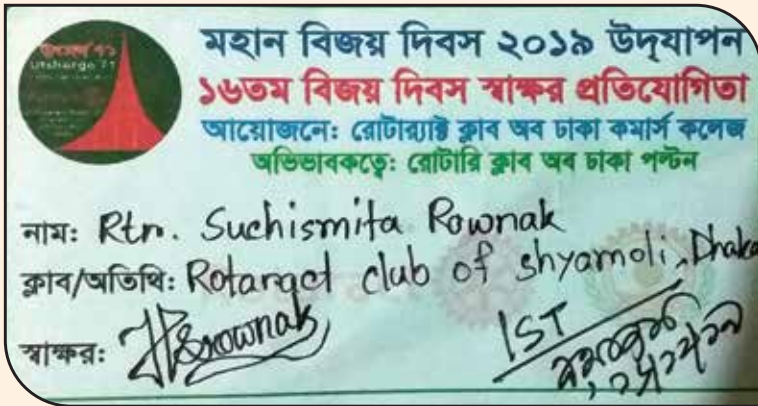 উৎসর্গ '৭১
Utshargo 71
মহান বিজয় দিবস ২০১৯ উদ্‌যাপন
১৬তম বিজয় দিবস স্বাক্ষর প্রতিযোগিতা
আয়োজনে: রোটার‍্যাক্ট ক্লাব অব ঢাকা কমার্স কলেজ
অভিভাবকত্বে: রোটারি ক্লাব অব ঢাকা পল্টন
নাম: Rtr. Suchismita Rownak
ক্লাব/অতিথি: Rotaract club of shyamoli, Dhaka
স্বাক্ষর: Rownak
1ST